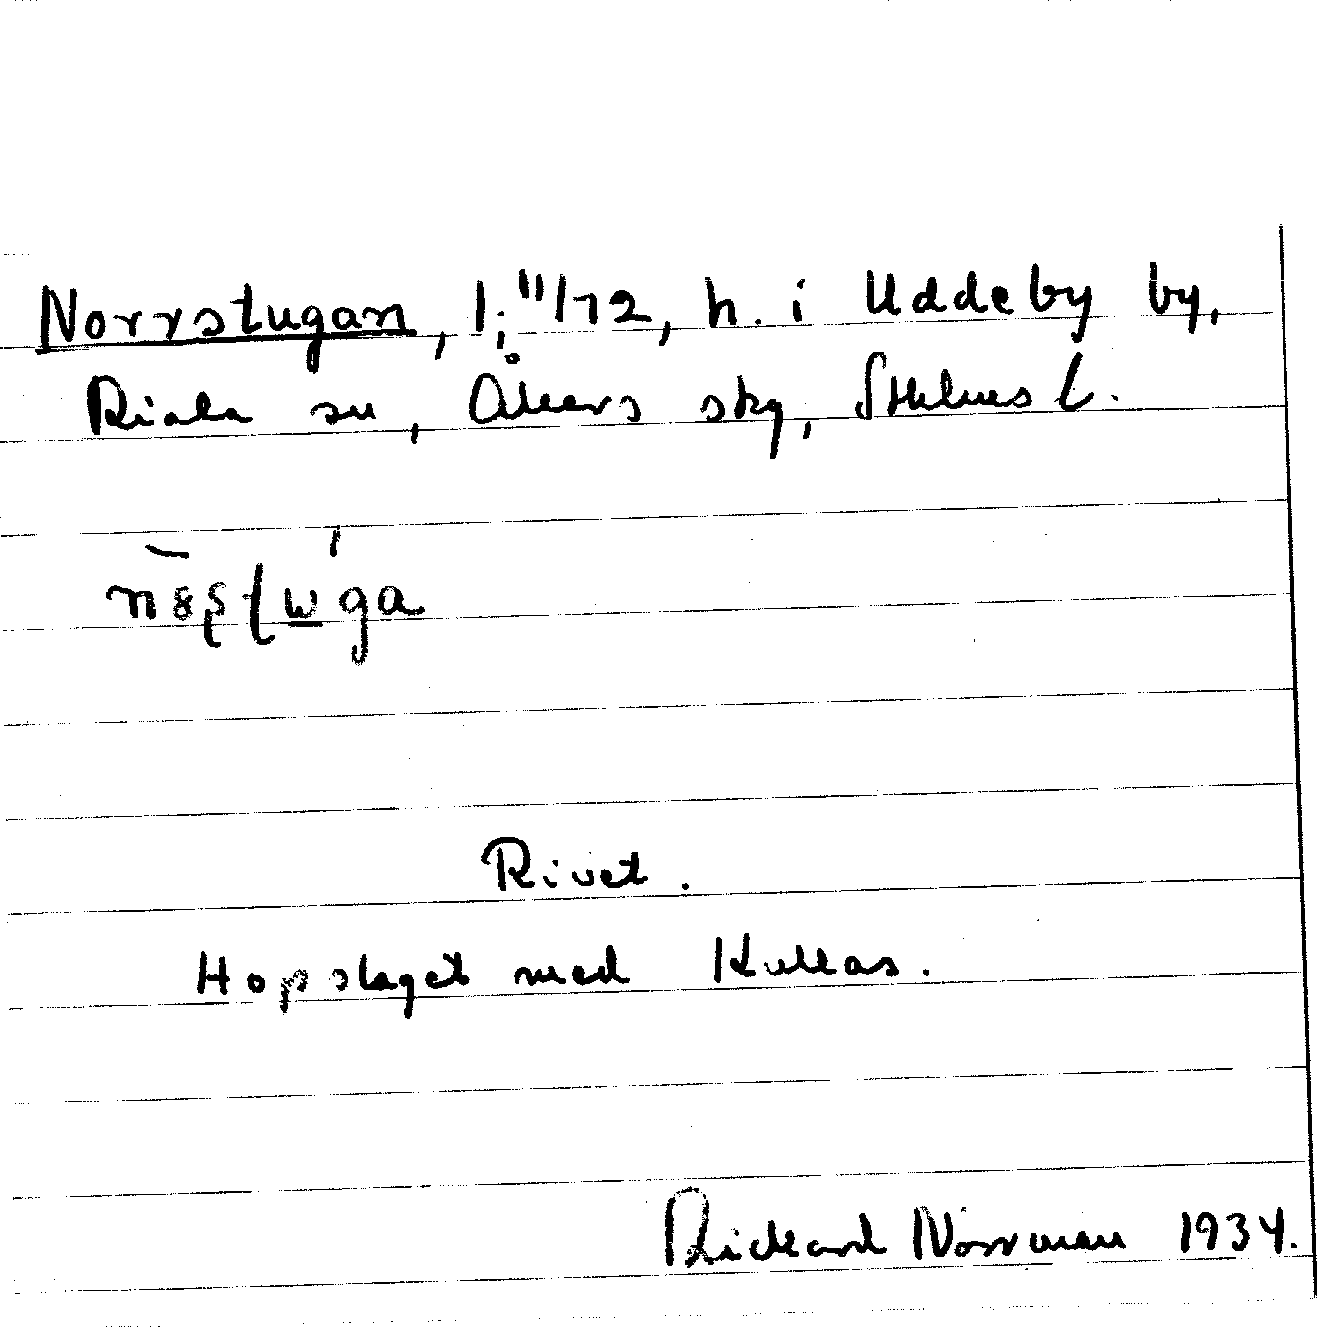 Norrstugan, 1; 11/72, h. i Uddeby by,
Riala sn, Åkers skg, Sthlms l.
Rivet.
Hopslaget med Kullas.
Rickard Norrman 1934.